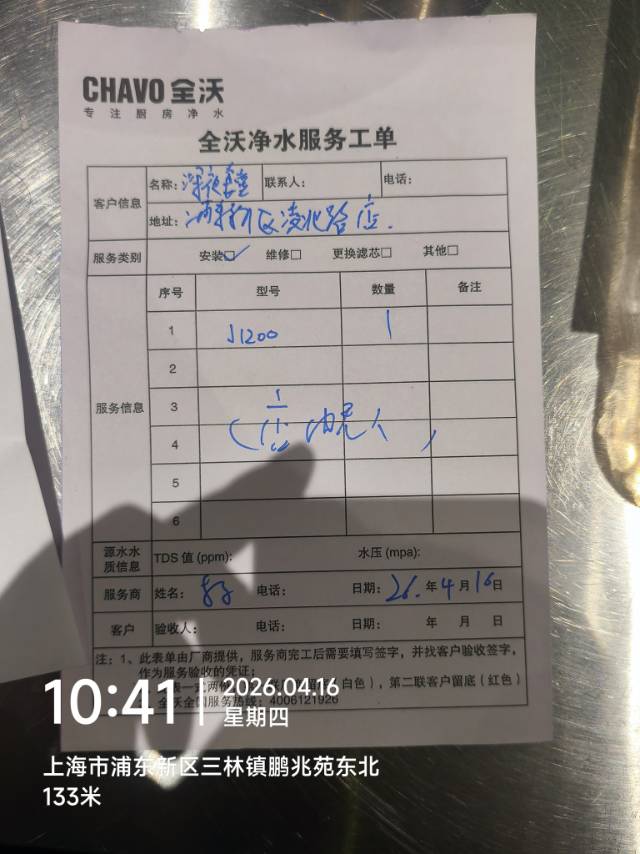 CHAVO 全沃
专注厨房净水
全沃净水服务工单
客户信息
名称: 深夜食堂 联系人: 电话:
地址: 浦东新区凌北路店.
服务类别 安装☑ 维修□ 更换滤芯□ 其他□
服务信息
序号 型号 数量 备注
1 J1200 1
2
3
4
5
6
源水水质信息 TDS 值 (ppm): 水压 (mpa):
服务商 姓名: 电话: 日期: 26. 年 4 月 16 日
客户 验收人: 电话: 日期: 年 月 日
注: 1、此表单由厂商提供，服务商完工后需要填写签字，并找客户验收签字，
作为服务验收的凭证;
表一式两 白色），第二联客户留底（红色）
全沃全国服务热线: 4006121926
10:41
2026.04.16
星期四
上海市浦东新区三林镇鹏兆苑东北
133米